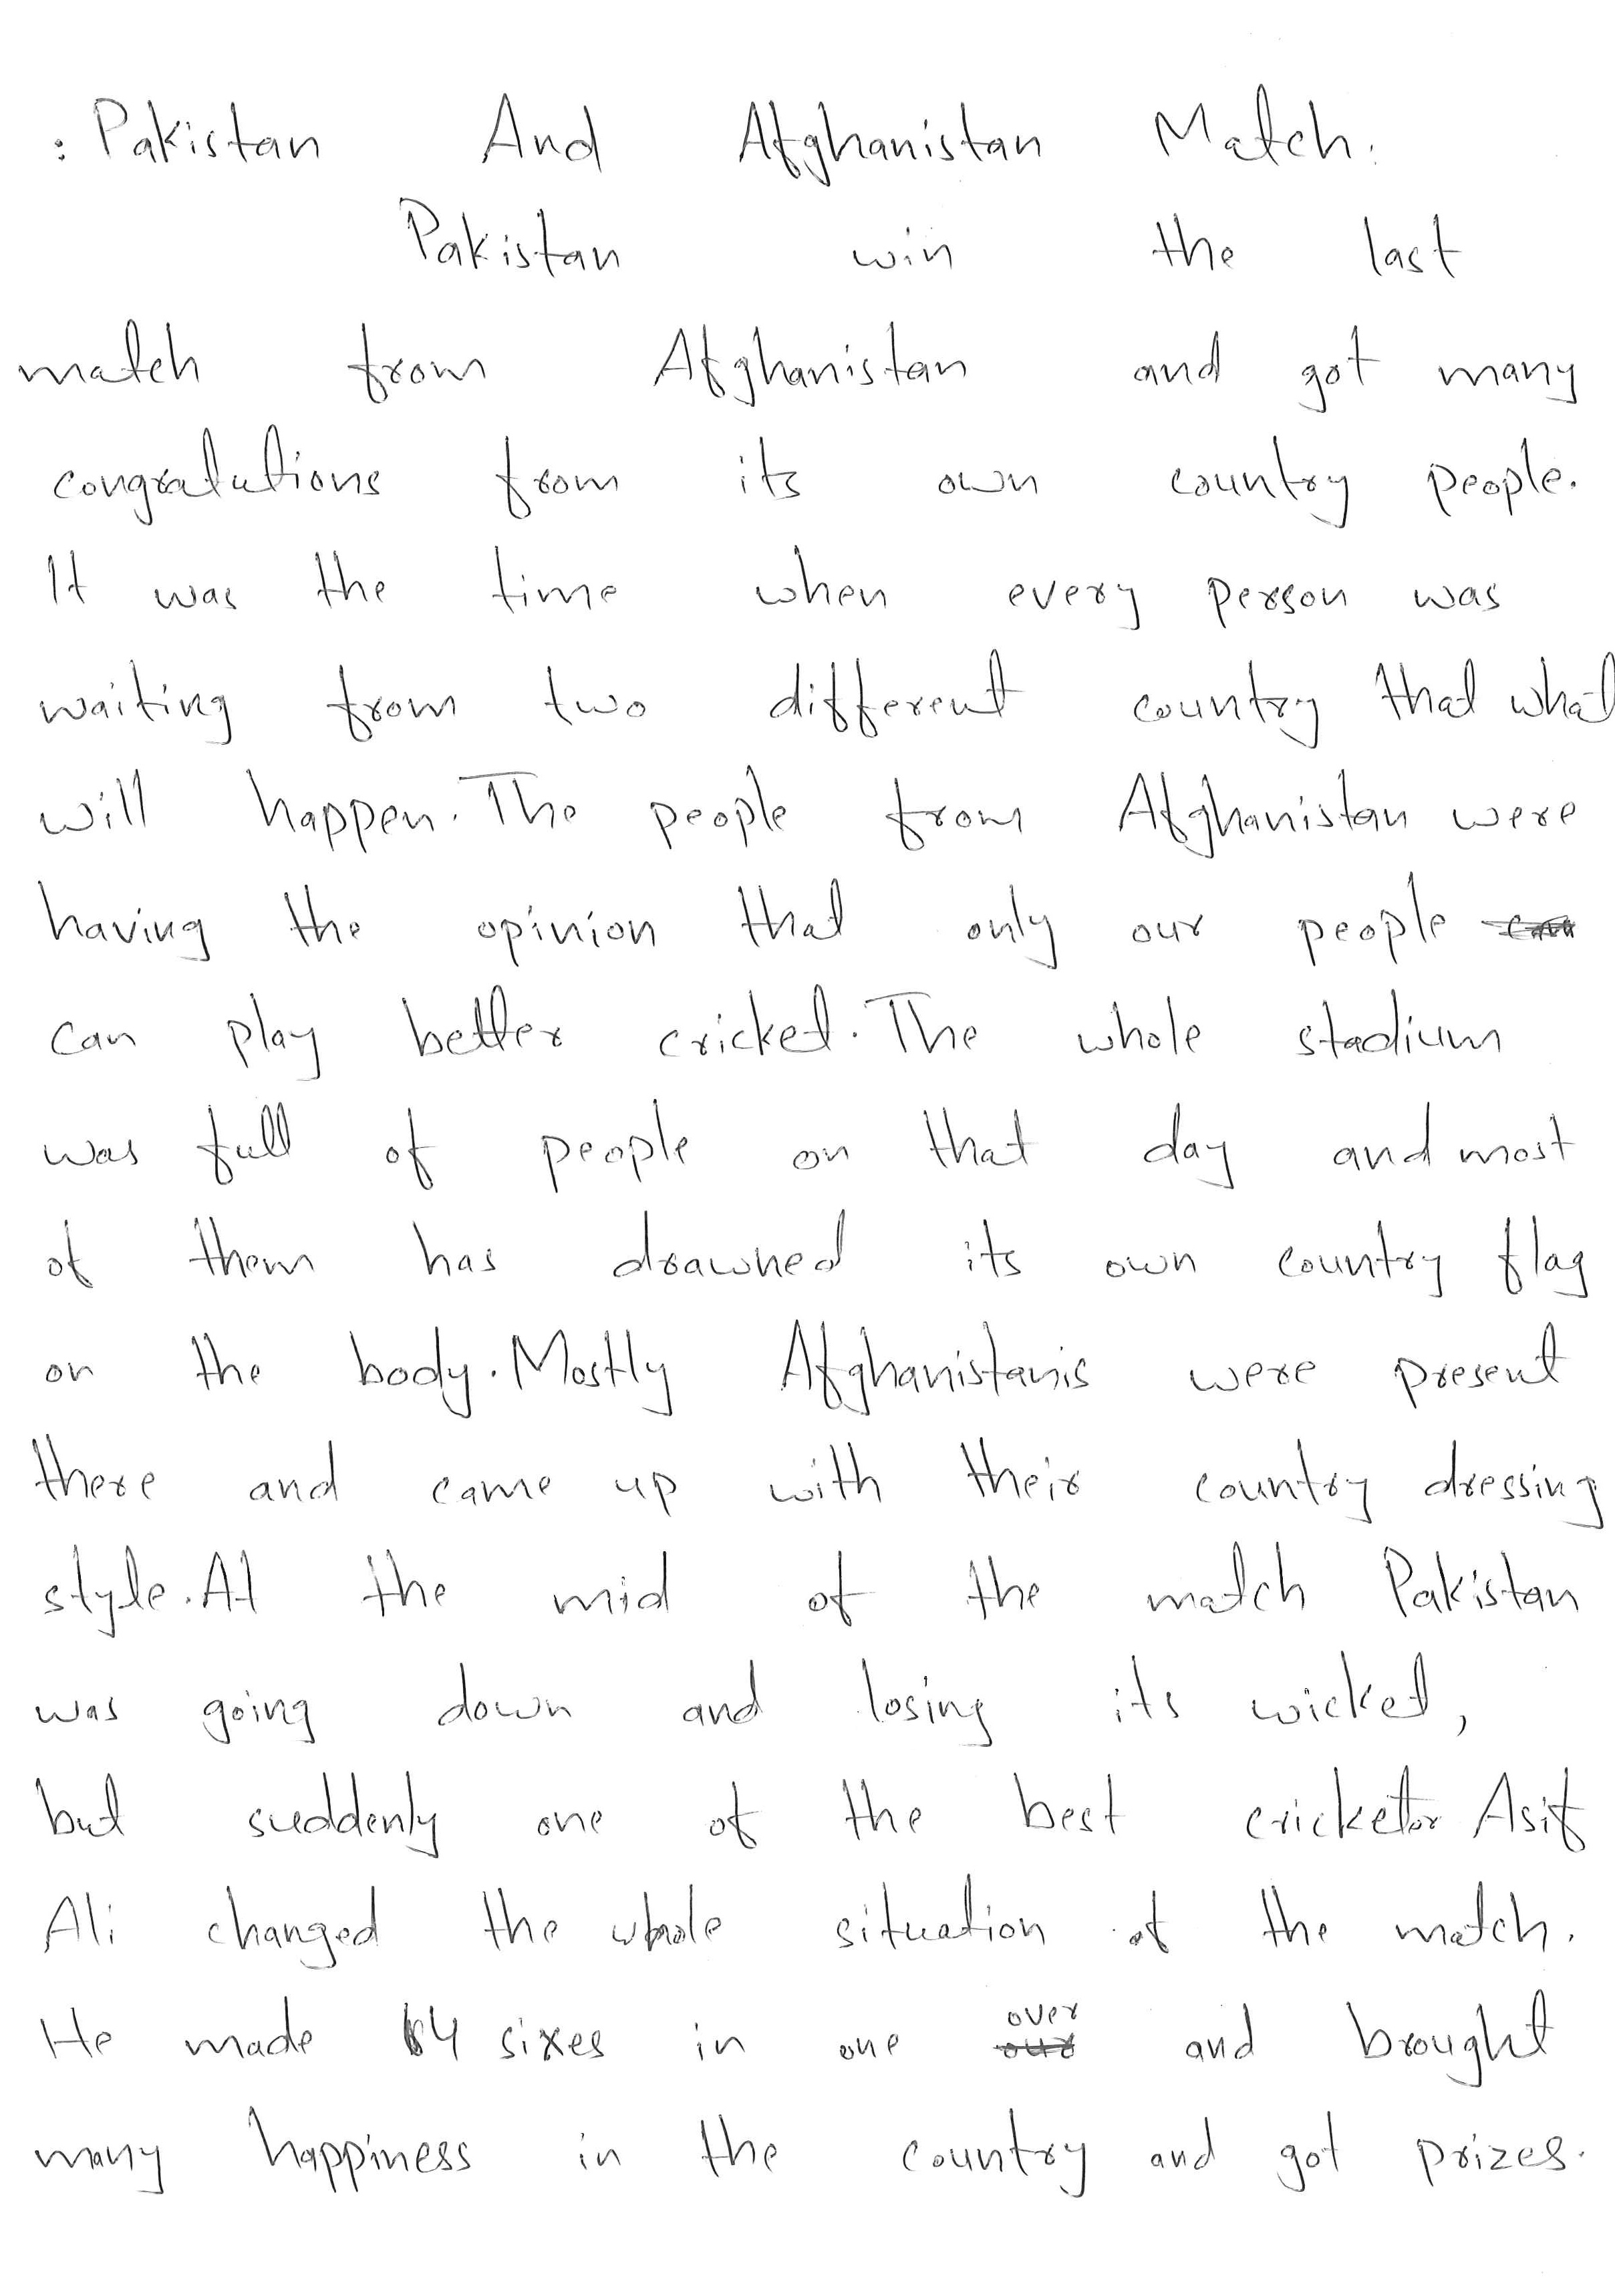 : Pakistan And Afghanistan Match:
Pakistan win the last
match from Afghanistan and got many
congratutions from its own country people.
It was the time when every person was
waiting from two different country that what
will happen. The people from Afghanistan were
having the opinion that only our people
can play better cricket. The whole stadium
was full of people on that day and most
of them has drawned its own country flag
on the body. Mostly Afghanistanis were present
there and came up with their country dressing
style. At the mid of the match Pakistan
was going down and losing its wicket,
but suddenly one of the best cricketor Asif
Ali changed the whole situation of the match.
He made 4 sixes in one over and brought
many happiness in the country and got prizes.